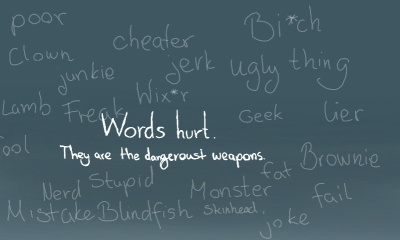 poor
Bi*ch
cheater
Clown
jerk
ugly thing
junkie
Wix*r
Lamb
Freak
Geek
lier
Words hurt.
ool
They are the dangeroust weapons.
Brownie
fat
Stupid
Nerd
Monster
fail
Mistake
Blindfish
Skinhead
joke